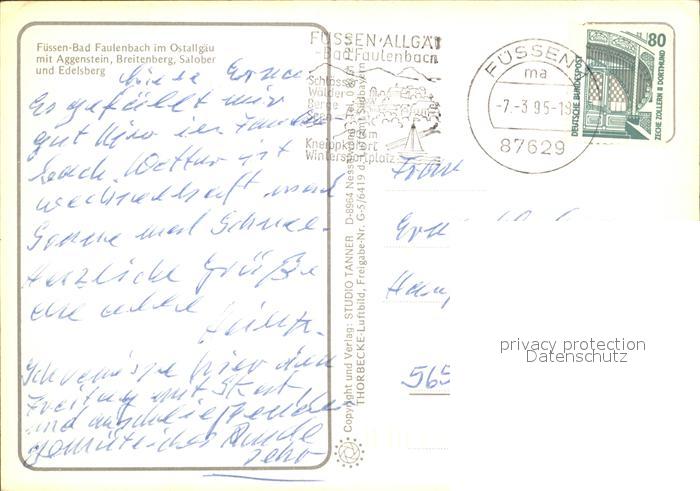 Füssen-Bad Faulenbach im Ostallgäu
mit Aggenstein, Breitenberg, Salober
und Edelsberg
Liebe Erna
Es gefällt mir
gut hier in Faulen
bach. Wetter ist
wechselhaft mal
Sonne mal Schnee.
Herzliche Grüße
an alle
Ich vermisse hier den
Freitag mit Skat
und anschliessender
gemütlicher Runde
sehr
Copyright und Verlag: STUDIO TANNER D-8964 Nesselwang
THORBECKE-Luftbild, Freigabe-Nr. G-5/6419 d. Südbayern
FÜSSEN·ALLGÄU
-Bad Faulenbach
Schlösser
Wälder
Berge
Seen
Kneippkurort
Wintersportplatz
FÜSSEN
ma
-7.-3.95-19
87629
80
DEUTSCHE BUNDESPOST
ZECHE ZOLLERN II DORTMUND
Frau
565
privacy protection
Datenschutz